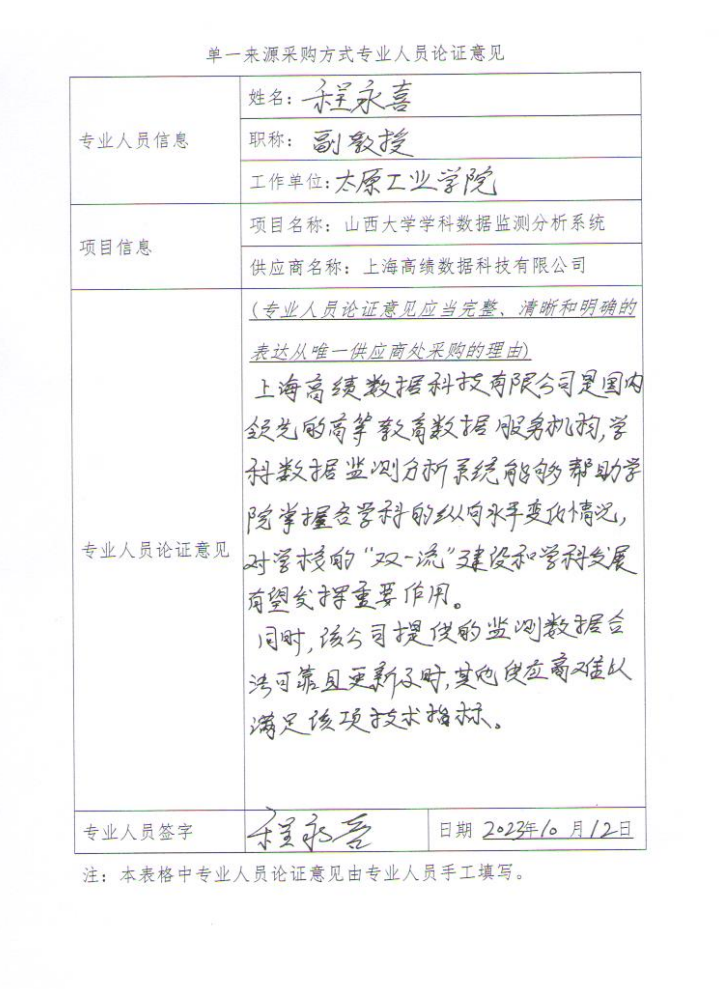 单一来源采购方式专业人员论证意见
专业人员信息
姓名：程永喜
职称：副教授
工作单位：太原工业学院
项目信息
项目名称：山西大学学科数据监测分析系统
供应商名称：上海高绩数据科技有限公司
专业人员论证意见
(专业人员论证意见应当完整、清晰和明确的
表达从唯一供应商处采购的理由)
上海高绩数据科技有限公司是国内
领先的高等教育数据服务机构,学
科数据监测分析系统能够帮助学
院掌握各学科的纵向水平变化情况,
对学校的“双一流”建设和学科发展
有望发挥重要作用。
同时,该公司提供的监测数据合
法可靠且更新及时,其他供应商难以
满足该项技术指标。
专业人员签字
程永喜
日期 2023年10月12日
注：本表格中专业人员论证意见由专业人员手工填写。